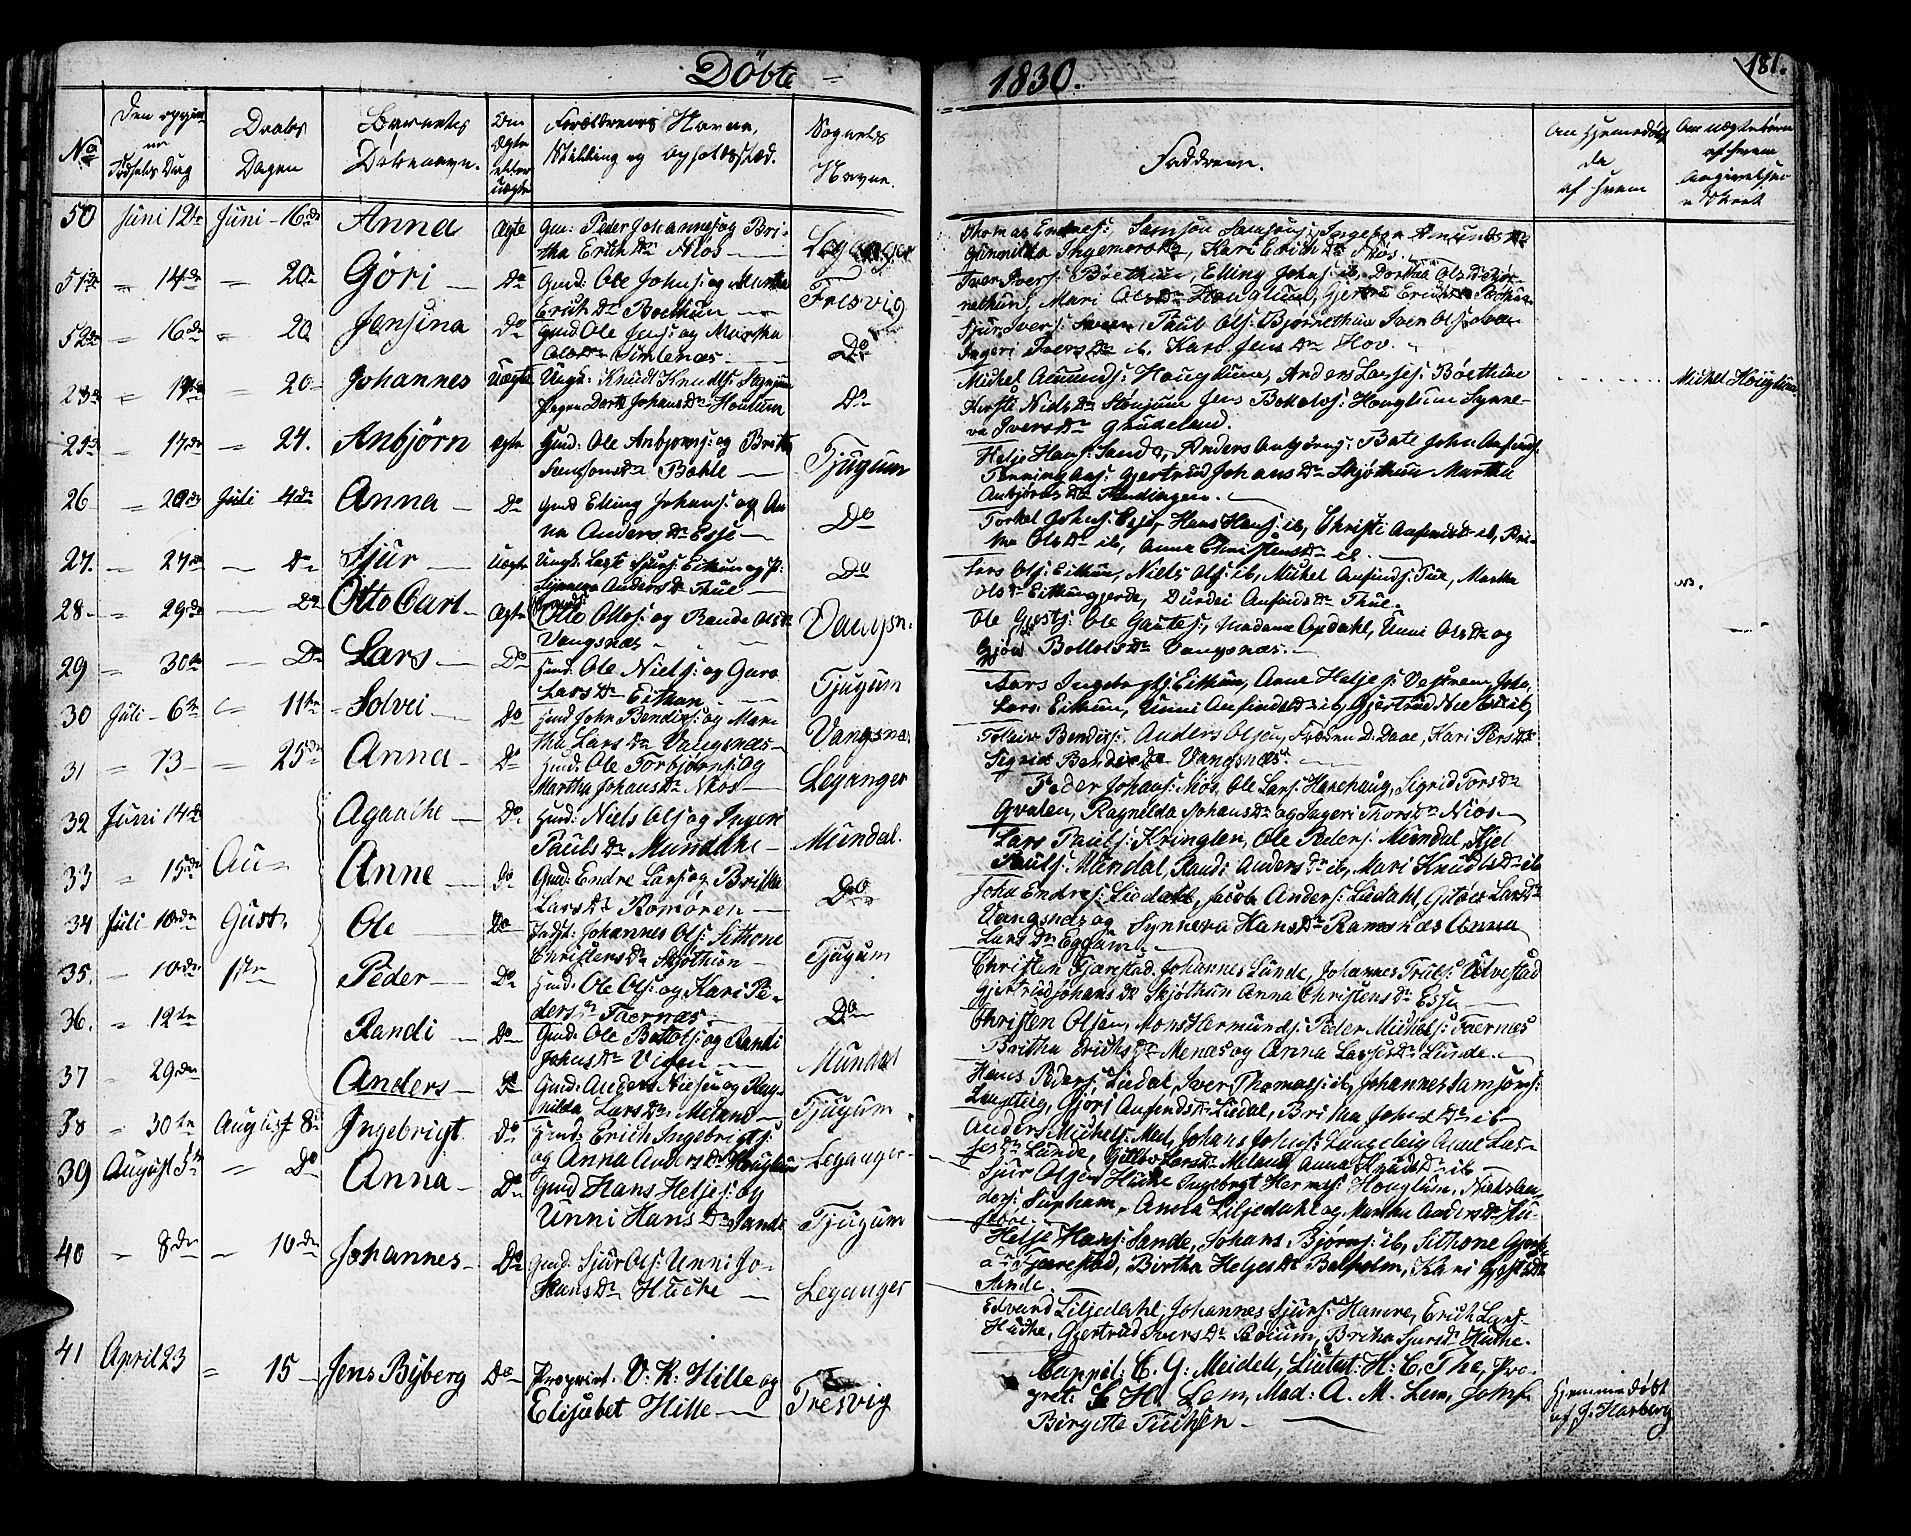 Döbte 1830. 181.
No Den Dag Daabs Dagen Barnets Döbenavn. Om Ægte eller uægte Forældrenes Navne, Stilling og Opholdssted. Sognets Navne. Faddrene. Om Hjemmedöbt da af hvem Om uægte af hvem Angivelsen
50 Juni 12te Juni 16de Anna Ægte Gm: Peder Johannes: og Bri-
tha Erichdr Niøs Leganger
Thomas Samson Samsons: Ingebor
Gunnilda Ingemorsdr, Kari Erichdr Niøs.
14de 20 Göri Do Gmd: Ole Johns: og Martha
Erichsdr Boethun Fresvig
Iver Ivers: Böethun, Elling Johns: ib, Dorthea Olsdr
Mari Olsdr Houglum, Gjertru Erichsdr
16de 20 Jensina Do Gmd Ole Jens: og Martha
Olsdr Simlenæs. Do
Sjur Ivers: Paul Ols: Björnethun Iver Ols:
Ingeri Iversdr ib, Kari Jensdr Hov.
20 Johannes Uægte Ungk: Knud Knuds:
Pigen Johansdr Houlum Do
Michel Amunds: Houglum, Anders Larses: Böethun
Kirsti Nielsdr Jens Botolvs: Houglum Synne-
va Iversdr Grudeland.
Michel Houglum
17de 24. Anbjørn Ægte Gmd: Ole Anbjørns: og Brita
Samsonsdr Bahle Tjugum
Helje Hans: Sande, Anders Anbjörns: Bale John Anfinds:
Gjertrud Johansdr Skjöthun Martha
Anbjörnsdr
26 20de Juli 4de Anna Do Gmd Elling Johans: og An
na Andersdr Esse Do
Torkel Johns: Hans Hans: ib, Christi Anfindsdr ib, Bri-
tha Olsdr ib, Anna Christensdr ib.
27. 27de Do Sjur Uægte Ungk: Lasse Sjurs: Eithun og p:
Synneva Andersdr Thue Do
Lars Ols: Eithun, Niels Ols: ib, Michel Anfinds: Tue, Martha
Olsdr Eithungjerde, Durdei Anfindsdr Thue.
NB.
28 29de Do Otto Carl Ægte Otto Ottos: og Rande Olsdr
Vangsnæs Vangsn.
Ole Gjests: Ole Gautes: Madame Opdahl, Unni Olsdr og
Gjøri Bottolsdr Vangsnæs.
29 30te Do Lars Do Gmd: Ole Niels: og Guro
Larsdr Eithun Tjugum
Lars Ingebrigts: Eithun, Anne Heljes: Joha
Lars: Eithun, Unni Anfindsdr ib, Gjertrud Nielsdr ib,
30 Juli 6te 11te Solvei Do Gmd John Bendix: og Mar-
tha Larsdr Vangsnæs Vangsnæs
Tolleiv Bendix: Anders Olsen, Daae, Kari Persdr
Sigrid Bendixdr Vangsnæs.
31 13 25de Anna Do Gmd: Ole Torbjørns: og
Martha Johansdr Niøs Leganger
Peder Johans: Niøs, Ole Lars: Hanehaug, Sigrid Torsdr
Qvalen, Ragnilda Johansdr og Ingeri Thorsdr Niøs
32 Juni 14de Agaathe Do Gmd: Niels Ols: og Ingeri
Paulsdr Mundal.
Lars Pauls: Kringlen, Ole Peders: Mundal, Kjel
Pauls: Mundal, Randi Andersdr ib, Mari Knudsdr ib
33 15de Au- Anne Do Gmd: Endre Lars: og Britha
Larsdr Romören Do
John Endres: Liedahl, Jacob Anders: Liedahl, Gitløv Larsdr
Vangsnæs og Synneva Hansdr Ramsnæs Anna
Larsdr Eggum
34 Juli 10de gust. Ole Do Johannes Ols: Sithone
Christensdr Skjöthun Tjugum
Christen Fjærestad, Johannes Lunde, Johannes Truls: Ulvestad
Gjertrud Johansdr Skjöthun Anna Christensdr Esse
35. 10de 1ste Peder Do Gmd: Ole Ols: og Kari Pe-
dersdr Faernæs Do
Christen Olsen, Mons Hermunds: Peder Michels: Faernæs
Britha Erichsdr Menæs og Anna Larsesdr Lunde.
36. 12te Randi Do Gmd: Ole Bottols: og Randi
Johnsdr Vigen Mundal
Hans Peders: Liedal, Iver Thomas: ib, Johannes Samsons:
Lingeteig, Gjöri Anfindsdr Liedal, Britha Johnsdr ib
37 29de Anders Do Gmd: Anders Nielsen og Rag-
nilda Larsdr Meland Tjugum
Anders Michels: Mel, Johans Johns: Lingeteig Anne Lar-
sesdr Lunde, Gitlov Larsdr Meland, Anna Knudsdr ib
38 30te August 8de Ingebrigt Do Gmd: Erich Ingebrigts:
og Anna Andersdr Houglum Leganger
Sjur Olsen Huke Ingebrigt Herms: Houglum, Niels An-
ders: Supham, Anna Liljedahl og Martha Andersdr Hu-
39 August 5te Do Anna Do Gmd Hans Heljes: og
Unni Hansdr Sande Tjugum
Helje Hans: Sande, Johans Bjørns: ib, Sithone
Fjærestad, Birtha Heljesdr Balholm, Kari Gjestsdr
Sande.
40 8de 10de Johannes Do Gmd: Sjur Ols: Unni Jo-
hansdr Huke Leganger
Edvard Liljedahl, Johannes Sjurs: Hamre, Erich Lars:
Huke, Gjertrud Iversdr Röium, Britha Sjursdr Huke.
41 April 23 15 Jens Byberg Do Propriet. V. K: Hille og
Elisabet Hille Fresvig
Cappel: C. G: Meidell, Liutnt: H: C. The, Pro-
gret: H. Lem, Mad: A. M. Lem, Jomf
Birgitte Tuchsen
Hjemmedöbt
af J: Harberg